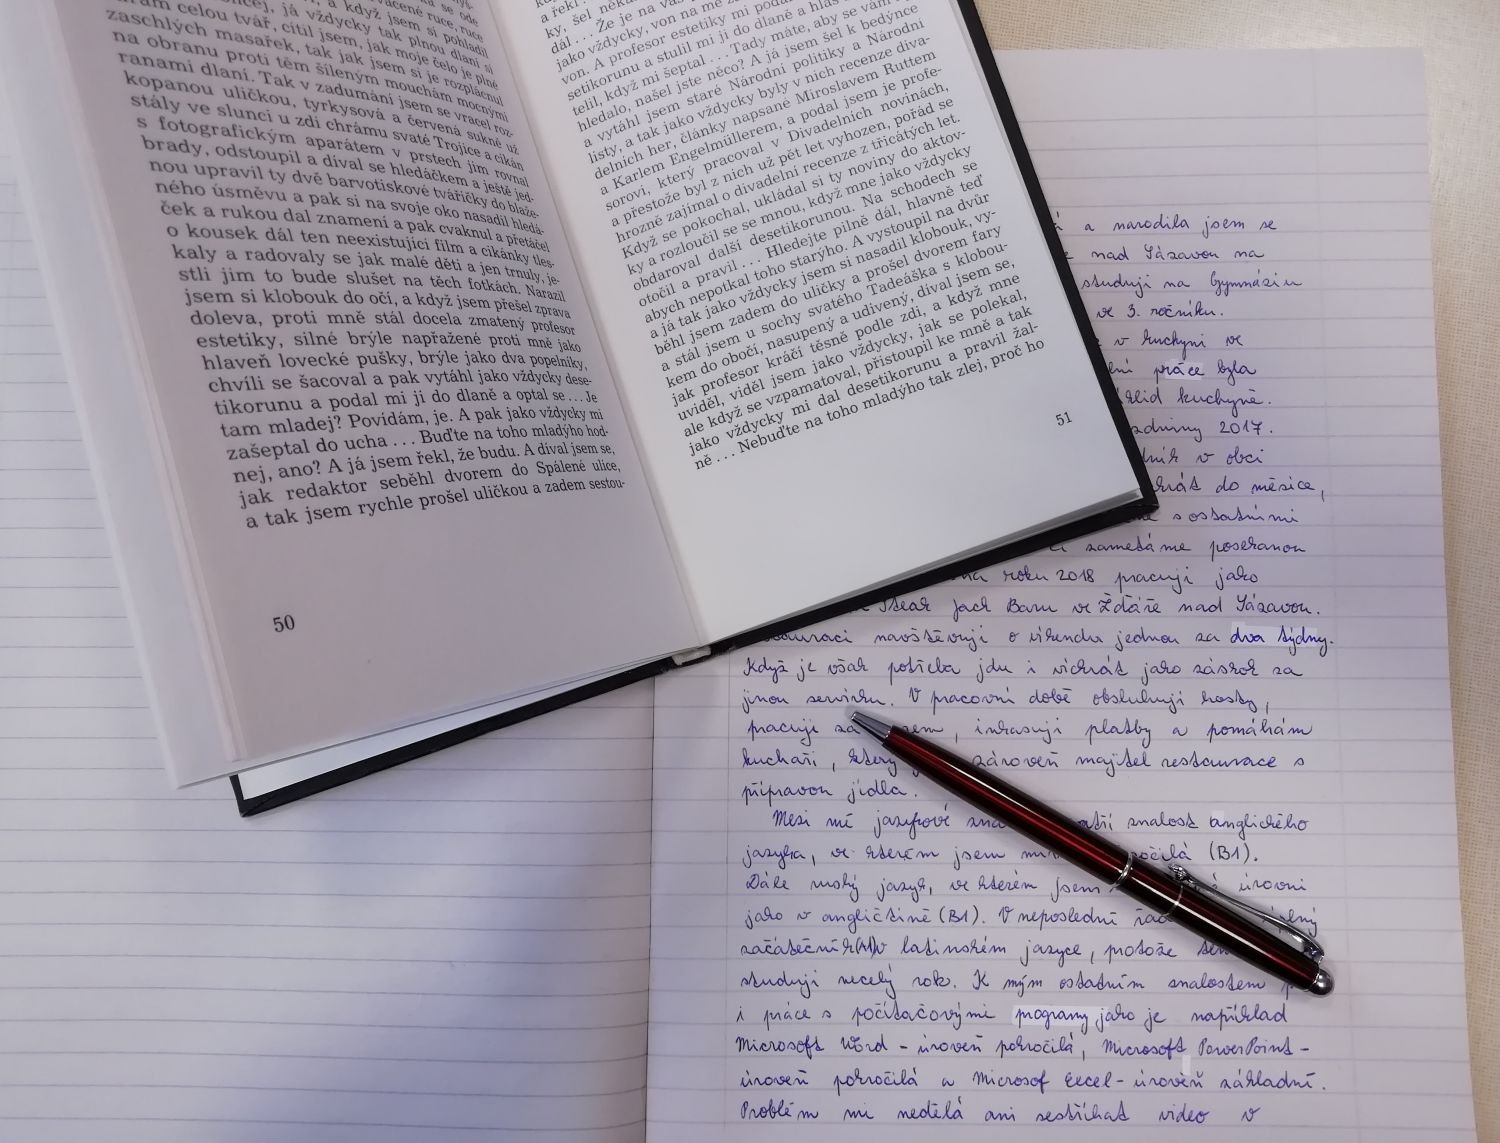 celou tvář, cítil jsem, jak moje čelo je plné
zaschlých masařek, tak jak jsem si je rozplácnul
na obranu proti těm šíleným mouchám mocnými
ranami dlaní. Tak v zadumání jsem se vracel roz-
kopanou uličkou, tyrkysová a červená sukně už
stály ve slunci u zdi chrámu svaté Trojice a cikán
s fotografickým aparátem v prstech jim rovnal
brady, odstoupil a díval se hledáčkem a ještě jed-
nou upravil ty dvě barvotiskové tvářičky do blaže-
ného úsměvu a pak si na svoje oko nasadil hledá-
ček a rukou dal znamení a pak cvaknul a přetáčel
o kousek dál ten neexistující film a cikánky tles-
kaly a radovaly se jak malé děti a jen trnuly, je-
stli jim to bude slušet na těch fotkách. Narazil
jsem si klobouk do očí, a když jsem přešel zprava
doleva, proti mně stál docela zmatený profesor
estetiky, silné brýle napřažené proti mně jako
hlaveň lovecké pušky, brýle jako dva popelníky,
chvíli se šacoval a pak vytáhl jako vždycky dese-
tikorunu a podal mi ji do dlaně a optal se . . . Je
tam mladej? Povídám, je. A pak jako vždycky mi
zašeptal do ucha . . . Buďte na toho mladýho hod-
nej, ano? A já jsem řekl, že budu. A díval jsem se,
jak redaktor seběhl dvorem do Spálené ulice,
a tak jsem rychle prošel uličkou a zadem sestou-
50
jako vždycky, von na mě
von. A profesor estetiky mi podal
setikorunu a stulil mi ji do dlaně a hlas
telil, když mi šeptal . . . Tady máte, aby se vám
hledalo, našel jste něco? A já jsem šel k bedýnce
a vytáhl jsem staré Národní politiky a Národní
listy, a tak jako vždycky byly v nich recenze diva-
delních her, články napsané Miroslavem Ruttem
a Karlem Engelmüllerem, a podal jsem je profe-
sorovi, který pracoval v Divadelních novinách,
a přestože byl z nich už pět let vyhozen, pořád se
hrozně zajímal o divadelní recenze z třicátých let.
Když se pokochal, ukládal si ty noviny do aktov-
ky a rozloučil se se mnou, když mne jako vždycky
obdaroval další desetikorunou. Na schodech se
otočil a pravil . . . Hledejte pilně dál, hlavně teď
abych nepotkal toho starýho. A vystoupil na dvůr
a já tak jako vždycky jsem si nasadil klobouk, vy-
běhl jsem zadem do uličky a prošel dvorem fary
a stál jsem u sochy svatého Tadeáška s klobou-
kem do obočí, nasupený a udivený, díval jsem se,
jak profesor kráčí těsně podle zdi, a když mne
uviděl, viděl jsem jako vždycky, jak se polekal,
ale když se vzpamatoval, přistoupil ke mně a tak
jako vždycky mi dal desetikorunu a pravil žal-
ně . . . Nebuďte na toho mladýho tak zlej, proč ho
51
a narodila jsem se
nad Sázavou na
studuji na Gymnáziu
ve 3. ročníku.
v kuchyni ve
práce byla
úklid kuchyně.
2017.
v obci
do měsíce,
s ostatními
zametáme posekanou
roku 2018 pracuji jako
Steak Jack Baru ve Žďáře nad Sázavou.
navštěvuji o víkendu jednou za dva týdny.
Když je však potřeba jdu i víckrát jako záskok za
jinou servírku. V pracovní době obsluhuji hosty,
pracuji za , inkasuji platby a pomáhám
kuchaři, který zároveň majitel restaurace s
přípravou jídla.
Mezi mé jazykové patří znalost anglického
jazyka, ve kterém jsem (B1).
Dále ruský jazyk, ve kterém jsem úrovni
jako v angličtině (B1). V neposlední
začátečník (A1) v latinském jazyce, protože
studuji necelý rok. K mým ostatním znalostem
i práce s počítačovými programy jako je například
Microsoft Word - úroveň pokročilá, Microsoft PowerPoint -
úroveň pokročilá a Microsof Excel - úroveň základní.
Problém mi nedělá ani sestříhat video v